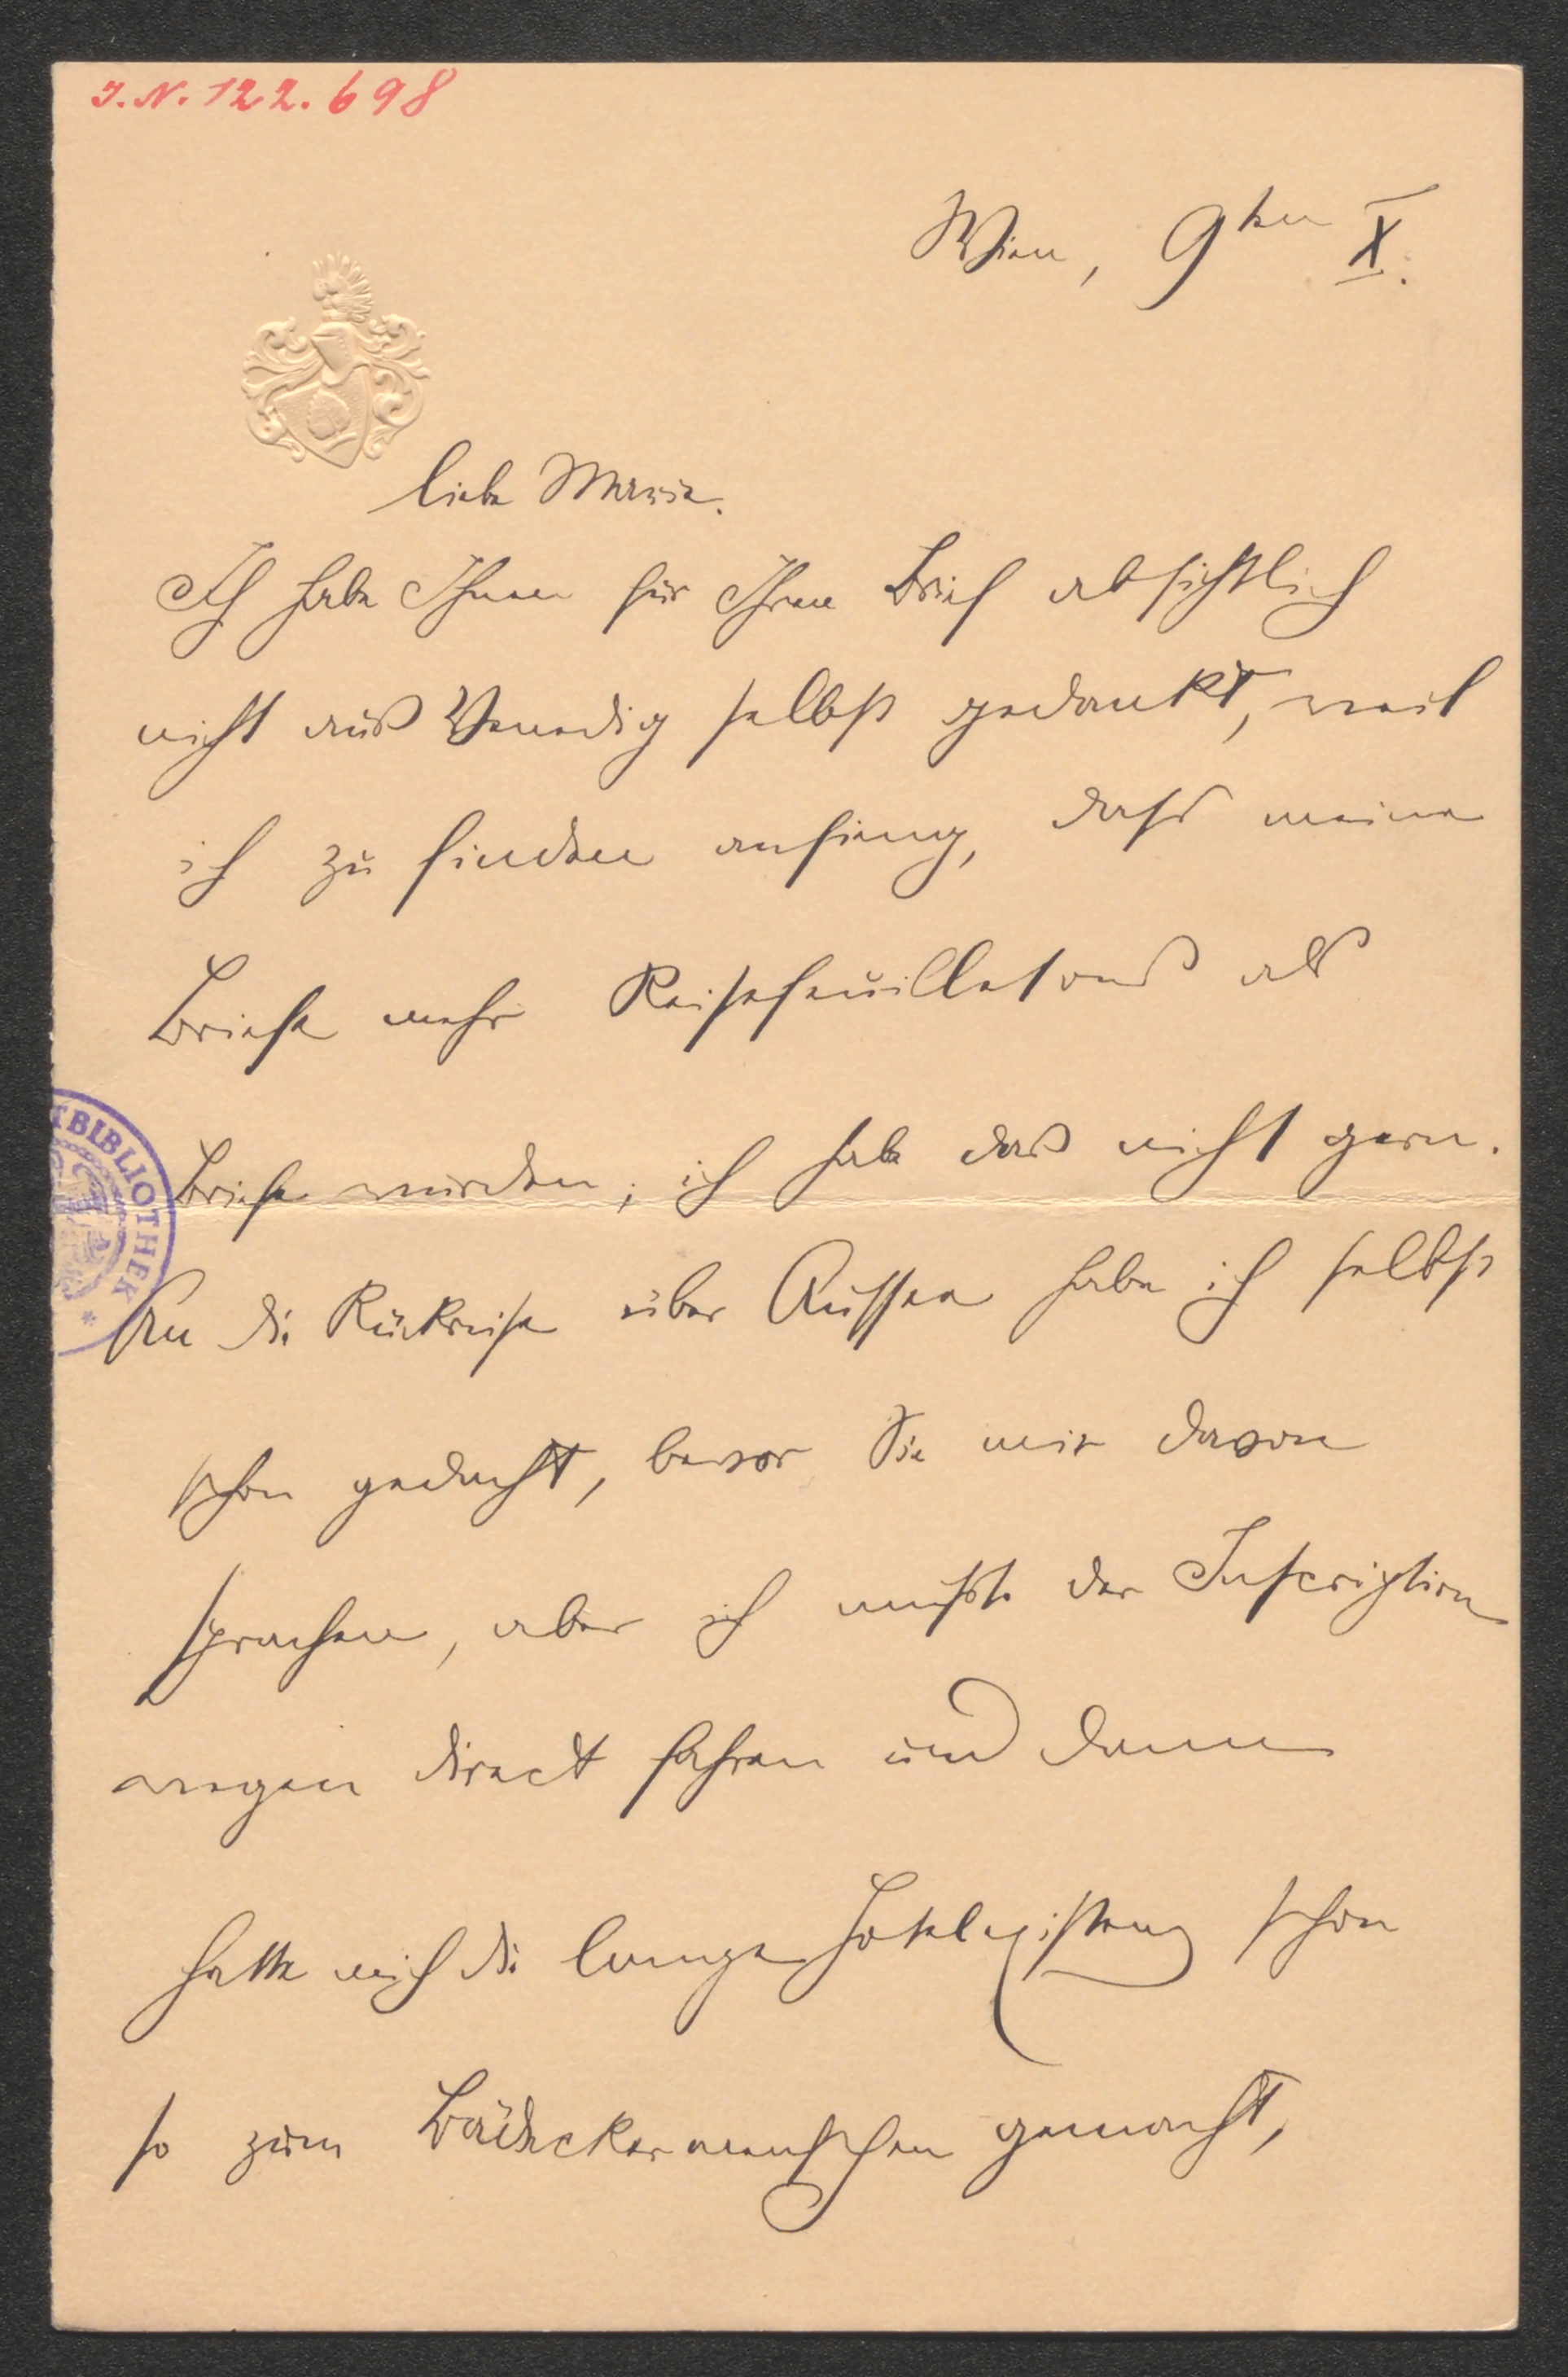 I.N. 122.698
Wien, 9ten X.
liebe Marie.
Ich habe Ihnen für Ihren Brief absichtlich
nicht aus Venedig selbst gedankt, weil
ich zu finden anfieng, dass meine
Briefe mehr Reisefeuilletons als
TBIBLIOTHEK
Briefe wurden; ich habe das nicht gern.
An die Rückreise über Aussee habe ich selbst
schon gedacht, bevor Sie mir davon
sprachen, aber ich mußte der Inscription
wegen direct fahren und dann
hatte mich die lange Hotelexistenz schon
so zum Bädeckermenschen gemacht,